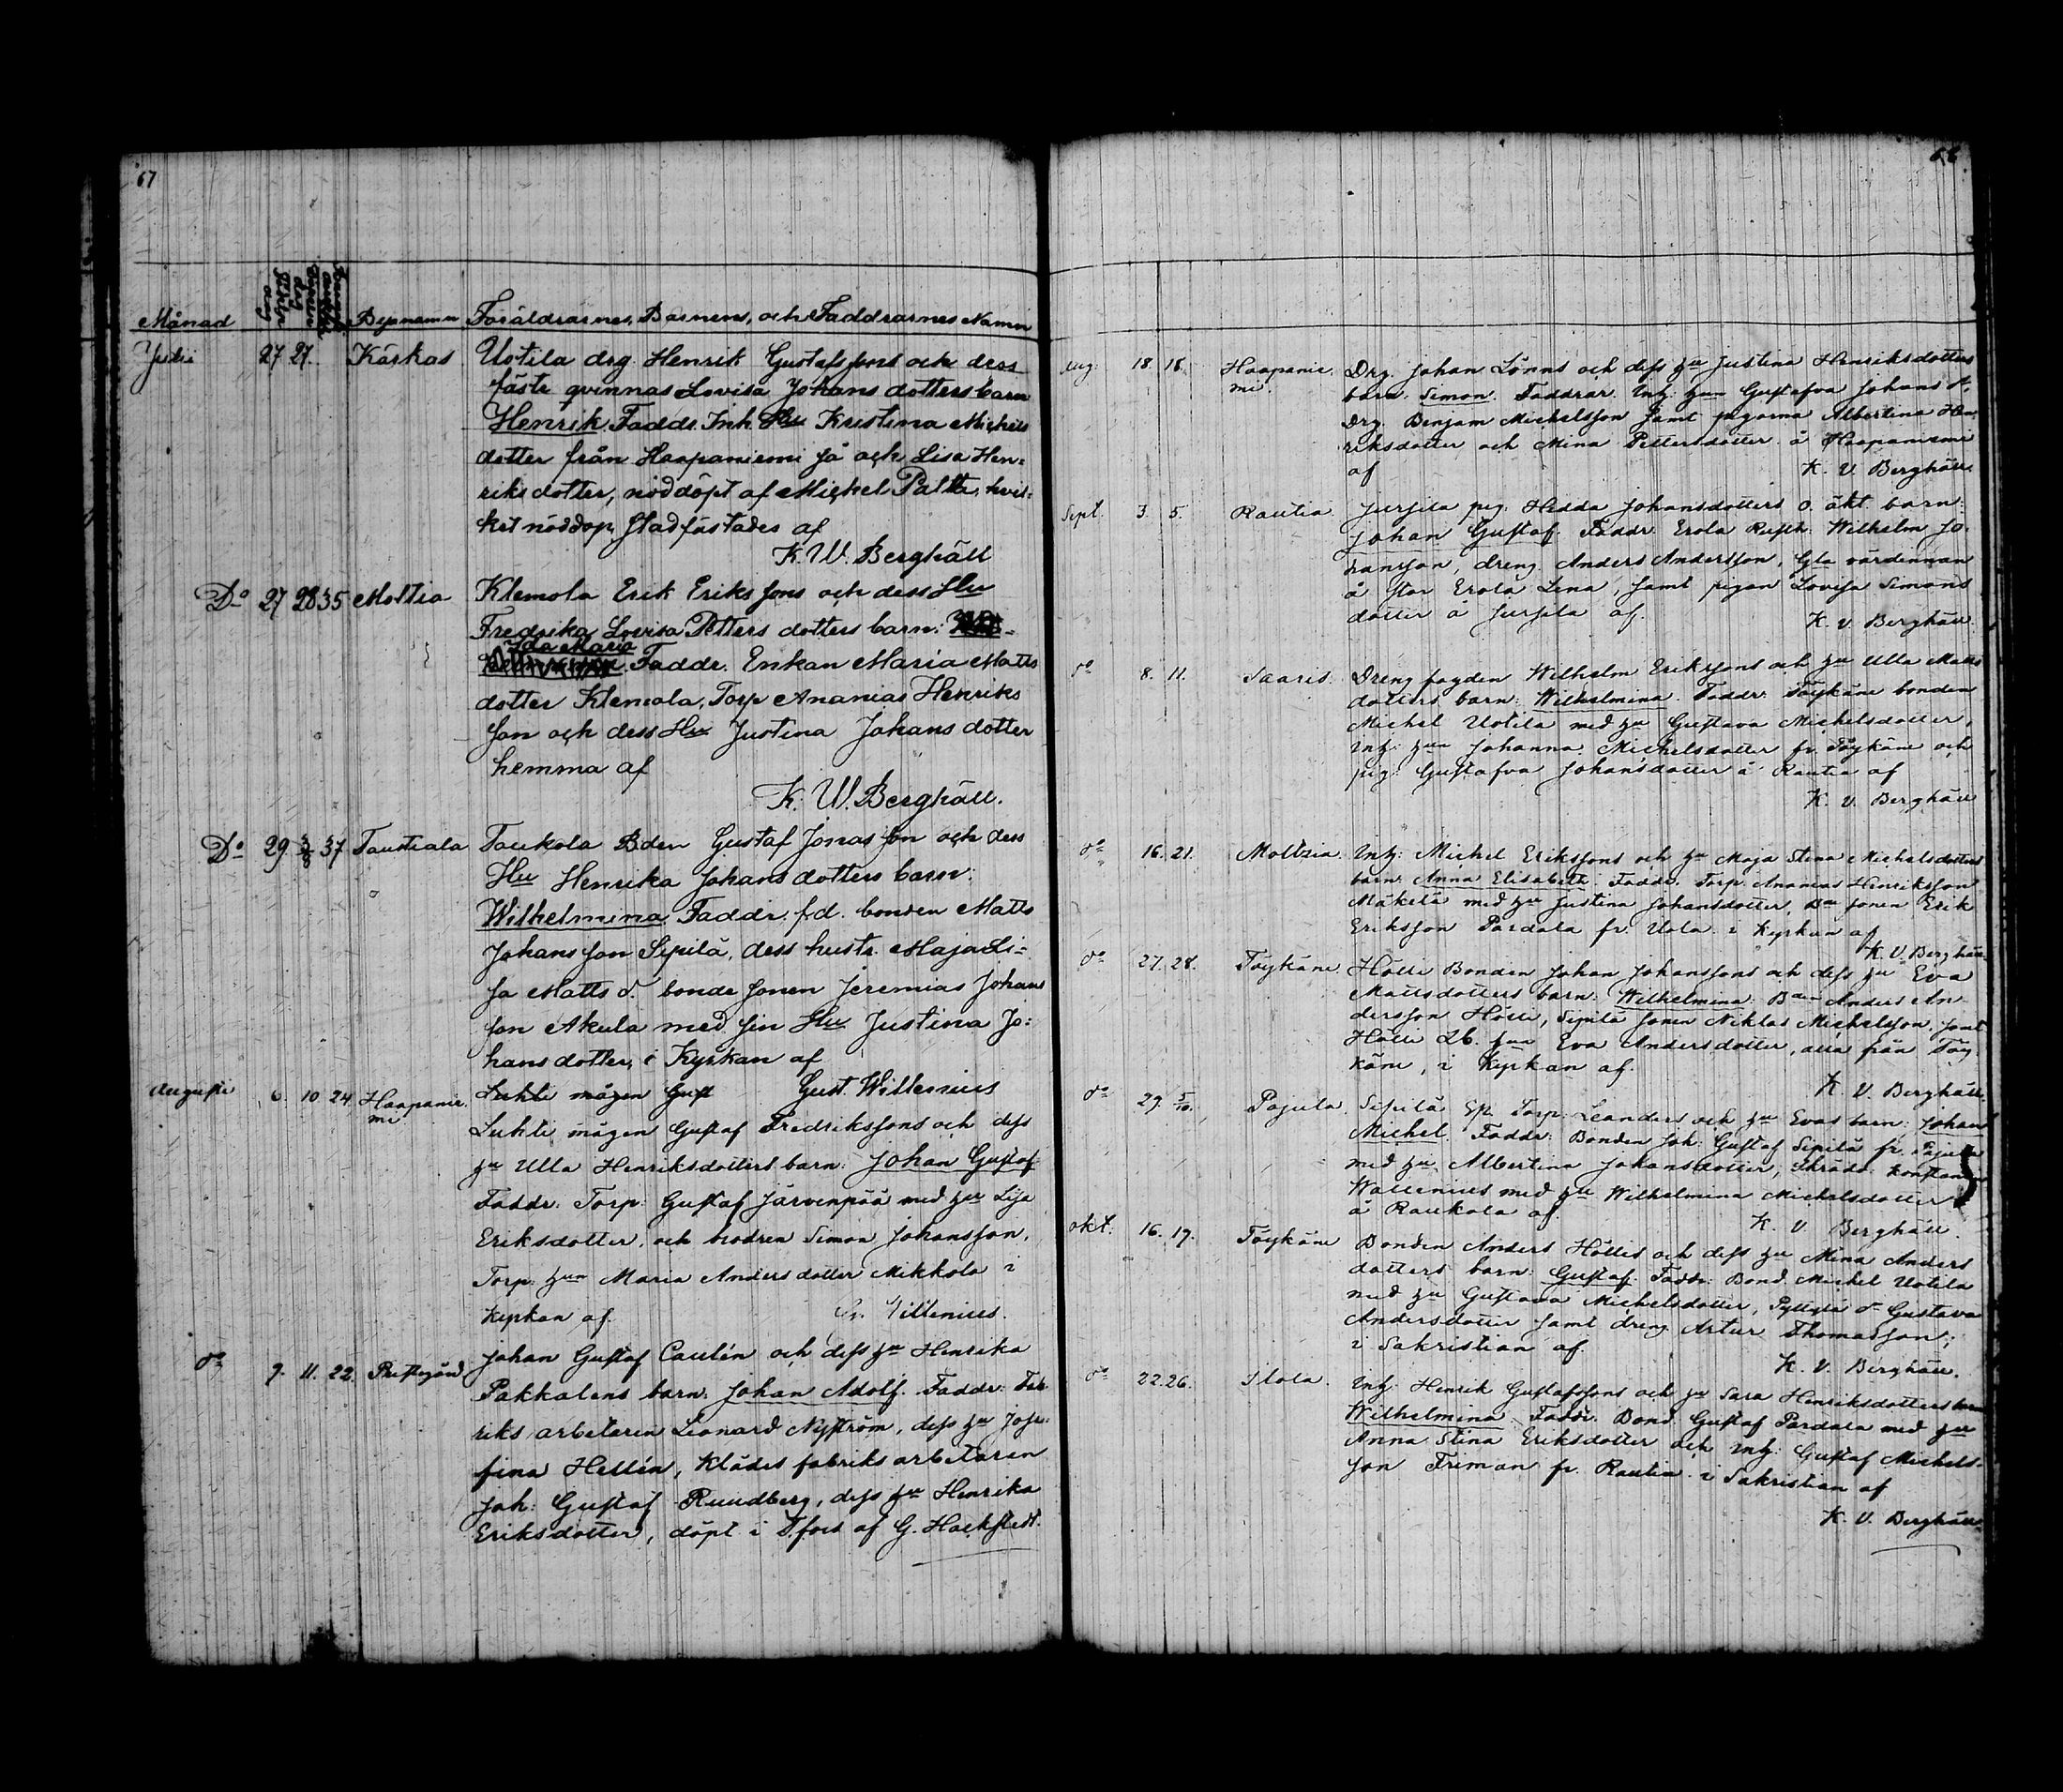 67
Månad Bynamn Föräldrarnes, Barnens, och Faddrarnes Namn
Julii 27 27. Kärkas Uotila drg. Henrik Gustafssons och dess
fäste qvinnas Lovisa Johans dotters barn
Henrik. Faddr. Inh. Hu Kristina Michels
dotter från Haapaniemi så och Lisa Hen=
riks dotter, nöddöpt af Michel Paltta, hvil=
ket nöddop stadfästades af
K. W. Berghäll
Do 27 28 35 Moltia Klemola Erik Eriks sons och dess Hu
Fredrika Lovisa Petters dotters barn:
Ida Maria
Faddr. Enkan Maria Matts
dotter Klemola, Torp Ananias Henriks
son och dess Hu Justina Johans dotter
hemma af
K. W. Berghäll.
Do 29 3/8 37 Taustiala Taukola Bden Gustaf Jonas son och dess
Hu Henrika Johans dotters barn:
Wilhelmina Faddr. f.d. bonden Matts
Johans son Sipilä, dess hustr. Maja Li=
sa Matts d. bonde sonen Jeremias Johans
son Akula med sin Hu Justina Jo=
hans dotter, i Kyrkan af
Gust. Willenius
Augusti 6. 10. 24 Haapanie
mi Luhti mågen Gust
Luhti mågen Gustaf Fredrikssons och dess
hu Ulla Henriksdotters barn: Johan Gustaf
Faddr. Torp: Gustaf Järvenpää med hu Lisa
Eriksdotter, och brodren Simon Johansson,
Torp: hun Maria Andersdotter Mikkola i
Kyrkan af. G. Willenius.
do 9. 11. 22. Prestegård Johan Gustaf Caulén och dess hu Henrika
Pakkalens barn: Johan Adolf. Faddr: Fab-
riks arbetaren Leonard Nyström, dess hu Jose-
fina Hellén, Klädes fabriks arbetaren
Joh: Gustaf Ruudberg, dess hu Henrika
Eriksdotter, döpt i T.fors af G. Hackstedt.
68
Aug. 18. 18. Haapanie
mi. Drg. Johan Lönns och dess hu Justina Henriksdotters
barn: Simon. Faddrar. Inh: hun Gustafva Johans d.
Drg. Benjam Michelsson samt pigorna Albertina Hen
riksdotter och Mina Pettersdotter å Haapaniemi
af K. V. Berghäll
Sept. 3. 5. Rautia. Jussila pig: Hedda Johansdotters o. äkt. barn:
Johan Gustaf. Faddr. Erola Rusth. Wilhelm Jo-
hansson, dreng Anders Andersson, Gla värdinnan
å Stor Erola Lena, samt pigan Lovisa Simons
dotter å Jussila af. K. V. Berghäll.
do 8. 11. Saaris. Dreng fogden Wilhelm Erikssons och hu Ulla Matts
dotters barn: Wilhelmina. Faddr: Töykäne bonden
Michel Uotila med hu Gustava Michelsdotter,
Inh: hun Johanna Michelsdotter fr. Töykäne och
pig: Gustafva Johansdotter å Rautia af
K. V. Berghäll
do 16. 21. Moltzia. Inh: Michel Erikssons och hu Maja Stina Michelsdotters
barn: Anna Elisabeth. Faddr. Torp. Ananias Henriksson
Mäkelä med hu Justina Johansdotter, Bde sonen Erik
Eriksson Pardala fr. Uola i Kyrkan af
K. V. Berghäll
do 27. 28. Töykäne. Hölli Bonden Johan Johanssons och dess hu Eva
Mattsdotters barn: Wilhelmina: Bden Anders An-
dersson Hölli, Sipilä sonen Niklas Michelsson, samt
Hölli Ldb. hun Eva Andersdotter, alla från Töy
käne, i Kyrkan af.
K. V. Berghäll.
do 29. 5/10. Pajula. Sipilä Torp. Leanders och hu Evas barn: Johan
Michel. Faddr: Bonden Joh: Gustaf Sipilä fr. Pajula
med hu Albertina Johansdotter, Skrädd: Konstantin
Wallenius med hu Wilhelmina Michelsdotter
å Raukola af. K. V. Berghäll.
Okt. 16. 19. Töykäne Bonden Anders Höllis och dess hu Mina Anders
dotters barn: Gustaf. Faddr. Bond. Michel Uotila
med hu Gustava Michelsdotter, Pyttylä dr Gustava
Andersdotter samt dreng Artur Thomasson;
i Sakristian af. K. V. Berghäll.
do 22. 26. Ilola. Inh: Henrik Gustafssons och hu Sara Henriksdotters barn
Wilhelmina. Faddr. Bond. Gustaf Pardala med hu
Anna Stina Eriksdotter och Inh: Gustaf Michels-
son Friman fr. Rautia i Sakristian af
K. V. Berghäll